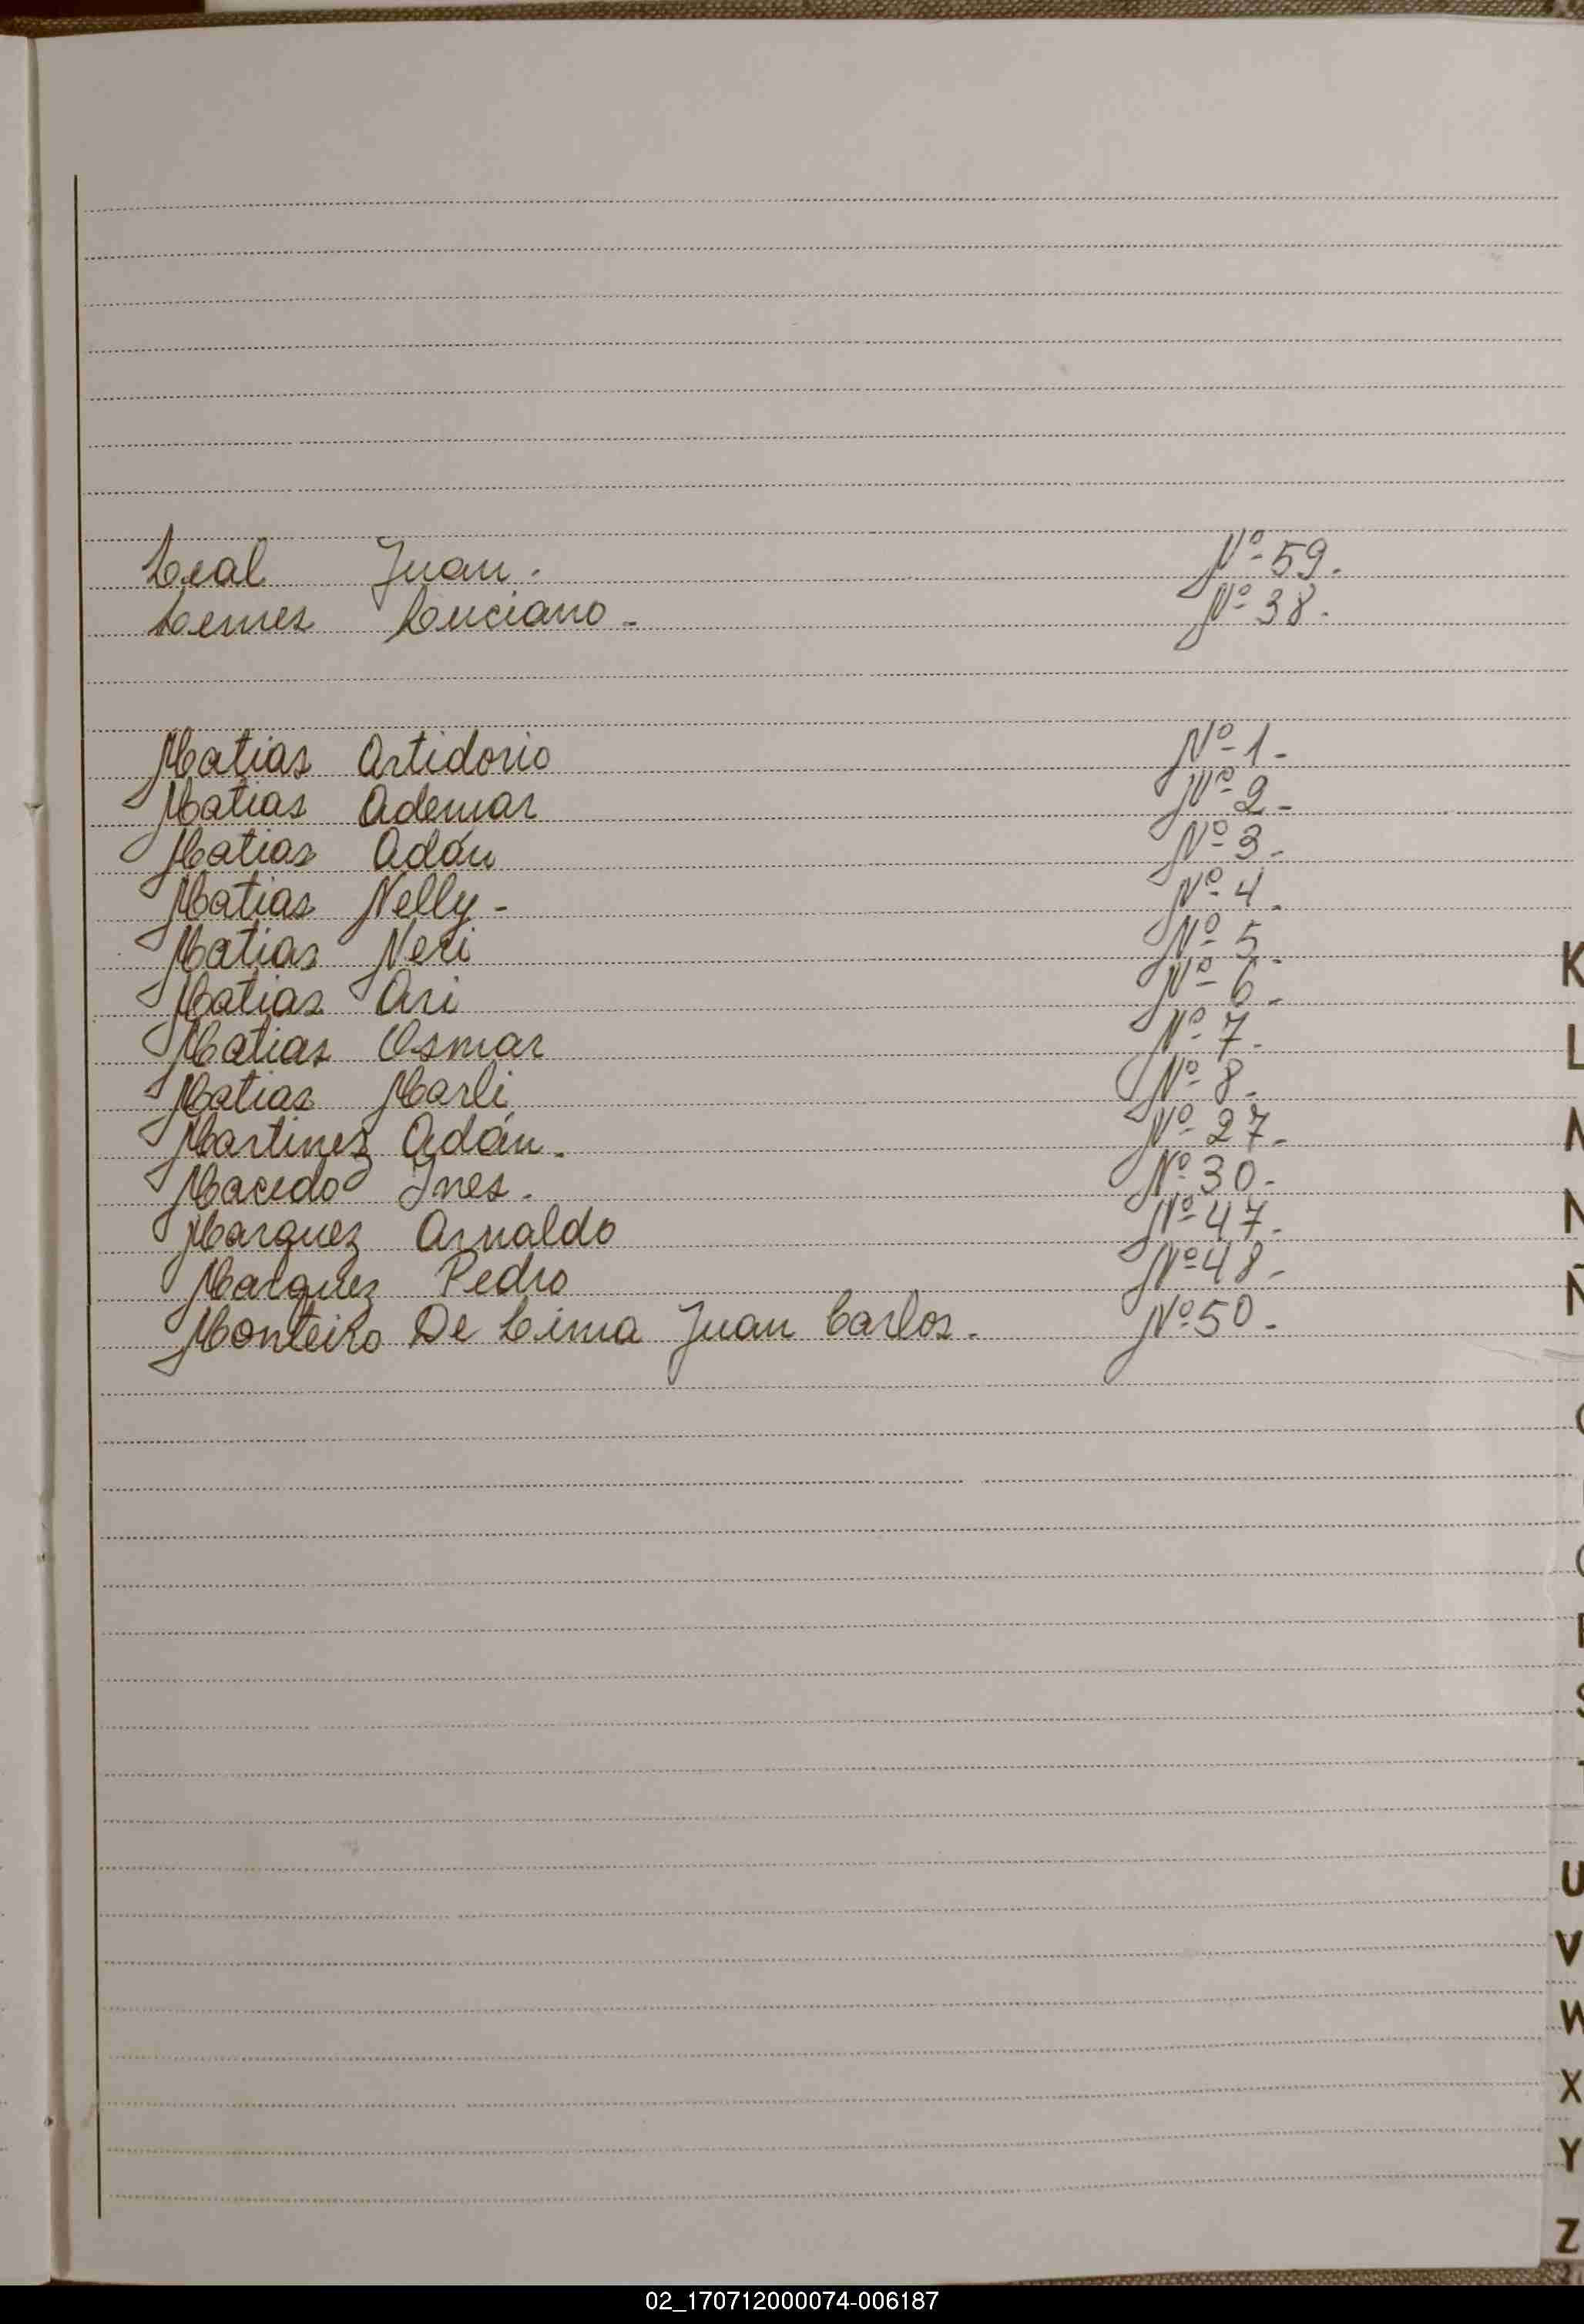 Leal Juan. Nº 59.
Lemes Luciano - Nº 38.
Matias Artidorio Nº 1 -
Matias Ademar Nº 2 -
Matias Adán Nº 3 -
Matias Nelly - Nº 4 -
Matias Neri Nº 5 -
Matias Ari Nº 6 -
Matias Osmar Nº 7 -
Matias Marli Nº 8 -
Martinez Adán - Nº 27 -
Macedo Ines - Nº 30 -
Marquez Arnaldo Nº 47 -
Marquez Pedro Nº 48 -
Monteiro De Lima Juan Carlos - Nº 50 -
K
L
M
N
Ñ
O
Q
R
S
T
U
V
W
X
Y
Z
02_170712000074-006187